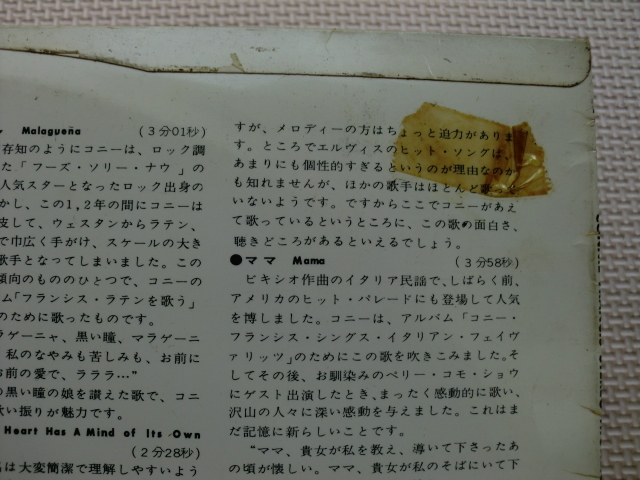 Malagueña (3分01秒)
存知のようにコニーは、ロック調
た「フーズ・ソリー・ナウ」の
人気スターとなったロック出身の
かし、この1,2年の間にコニーは
皮して、ウェスタンからラテン、
で巾広く手がけ、スケールの大き
歌手となってしまいました。この
傾向のもののひとつで、コニーの
ム「フランシス・ラテンを歌う」
のために歌ったものです。
ラゲーニャ、黒い瞳、マラゲーニ
私のなやみも苦しみも、お前に
お前の愛で、ラララ…"
の黒い瞳の娘を讃えた歌で、コニ
歌い振りが魅力です。
Heart Has A Mind of Its Own
(2分28秒)
は大変簡潔で理解しやすいよう
すが、メロディーの方はちょっと迫力がありま
す。ところでエルヴィスのヒット・ソングは、
あまりにも個性的すぎるというのが理由なのか
も知れませんが、ほかの歌手はほとんど歌って
いないようです。ですからここでコニーがあえ
て歌っているというところに、この歌の面白さ、
聴きどころがあるといえるでしょう。
●ママ Mama (3分58秒)
ビキシオ作曲のイタリア民謡で、しばらく前、
アメリカのヒット・パレードにも登場して人気
を博しました。コニーは、アルバム「コニー・
フランシス・シングス・イタリアン・フェイヴ
ァリッツ」のためにこの歌を吹きこみました。そ
してその後、お馴染みのペリー・コモ・ショウ
にゲスト出演したとき、まったく感動的に歌い、
沢山の人々に深い感動を与えました。これはま
だ記憶に新らしいことです。
"ママ、貴女が私を教え、導いて下さったあ
の頃が懐しい。ママ、貴女が私のそばにいて下